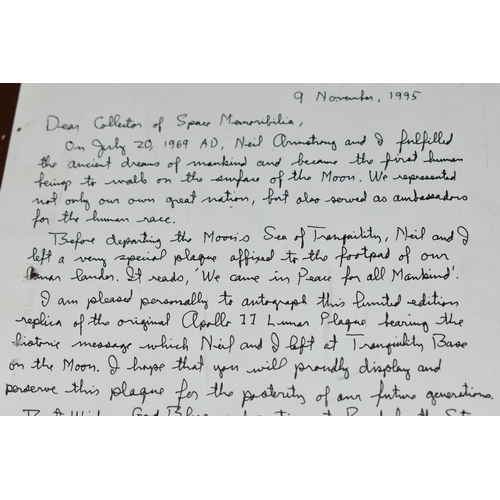 9 November, 1995
Dear Collector of Space Memoribilia,
On July 20, 1969 AD, Neil Armstrong and I fulfilled
the ancient dreams of mankind and became the first human
beings to walk on the surface of the Moon. We represented
not only our own great nation, but also served as ambassadors
for the human race.
Before departing the Moon's Sea of Tranquility, Neil and I
left a very special plaque affixed to the footpad of our
lunar lander. It reads, 'We came in Peace for all Mankind'.
I am pleased personally to autograph this limited edition
replica of the original Apollo 11 Lunar Plaque bearing the
historic message which Neil and I left at Tranquility Base
on the Moon. I hope that you will proudly display and
perserve this plaque for the posterity of our future generations.